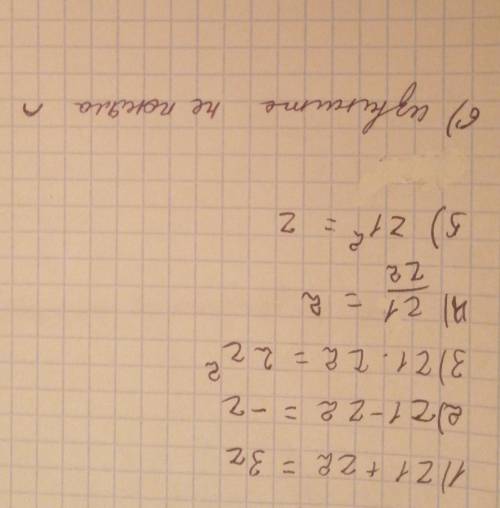 1) z1 + z2 = 3z
2) z1 - z2 = -z
3) z1 · z2 = 2z²
4) z1/z2 = 2
5) z1² = z
6) извините не поняла